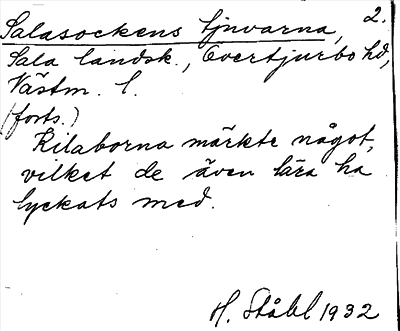 Salasockens tjuvarna, 2.
Sala landsk., Övertjurbo hd,
Västm. l.
(forts.)
Kilaborna märkte något,
vilket de även lära ha
lyckats med.
H. Ståhl 1932